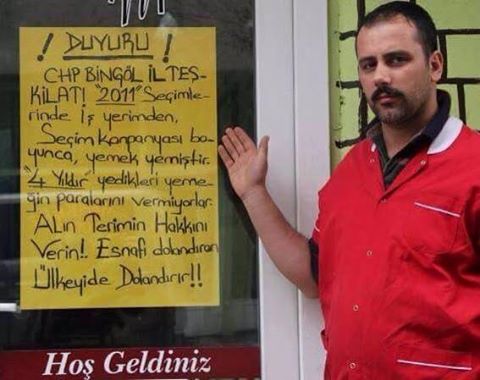 ! DUYURU !
CHP BİNGÖL İL TEŞ-
KİLATI "2011" Seçimle-
rinde İş yerimden,
Seçim Kanpanyası bo-
yunca, yemek yemiştir.
"4 Yıldır" yedikleri yeme-
ğin paralarını vermiyorlar.
ALın Terimin Hakkını
Verin! Esnafı dolandıran
Ülkeyide Dolandırır!!
Hoş Geldiniz